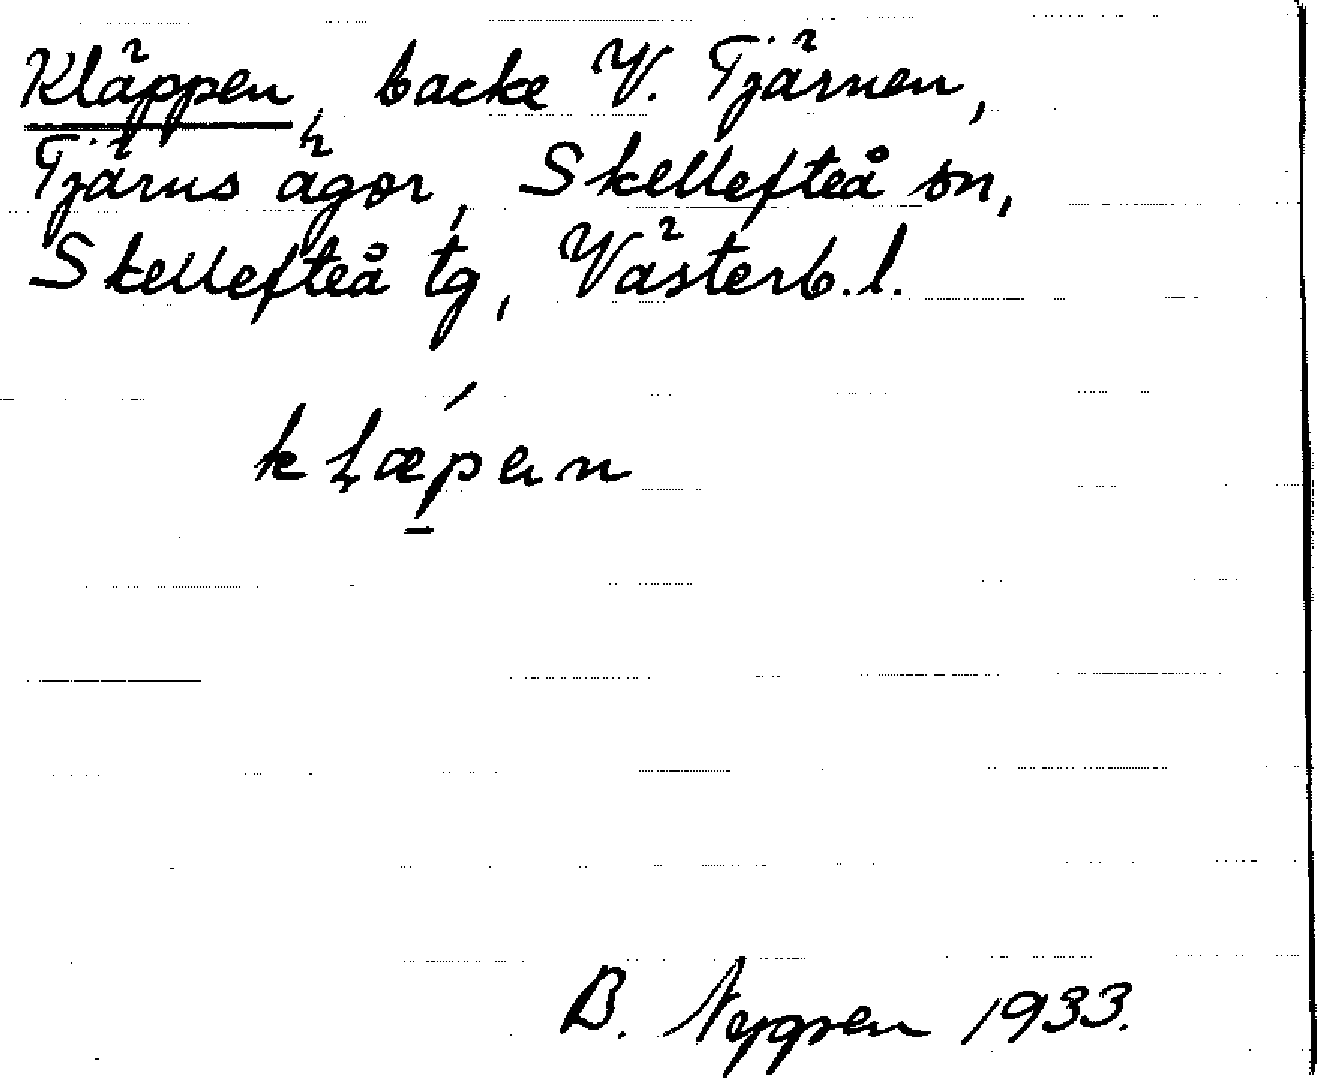 Kläppen, backe V. Tjärnen,
Tjärns ägor, Skellefteå sn,
Skellefteå tg, Västerb. l.
kḷæ´p̱ən
B. Nygren 1933.